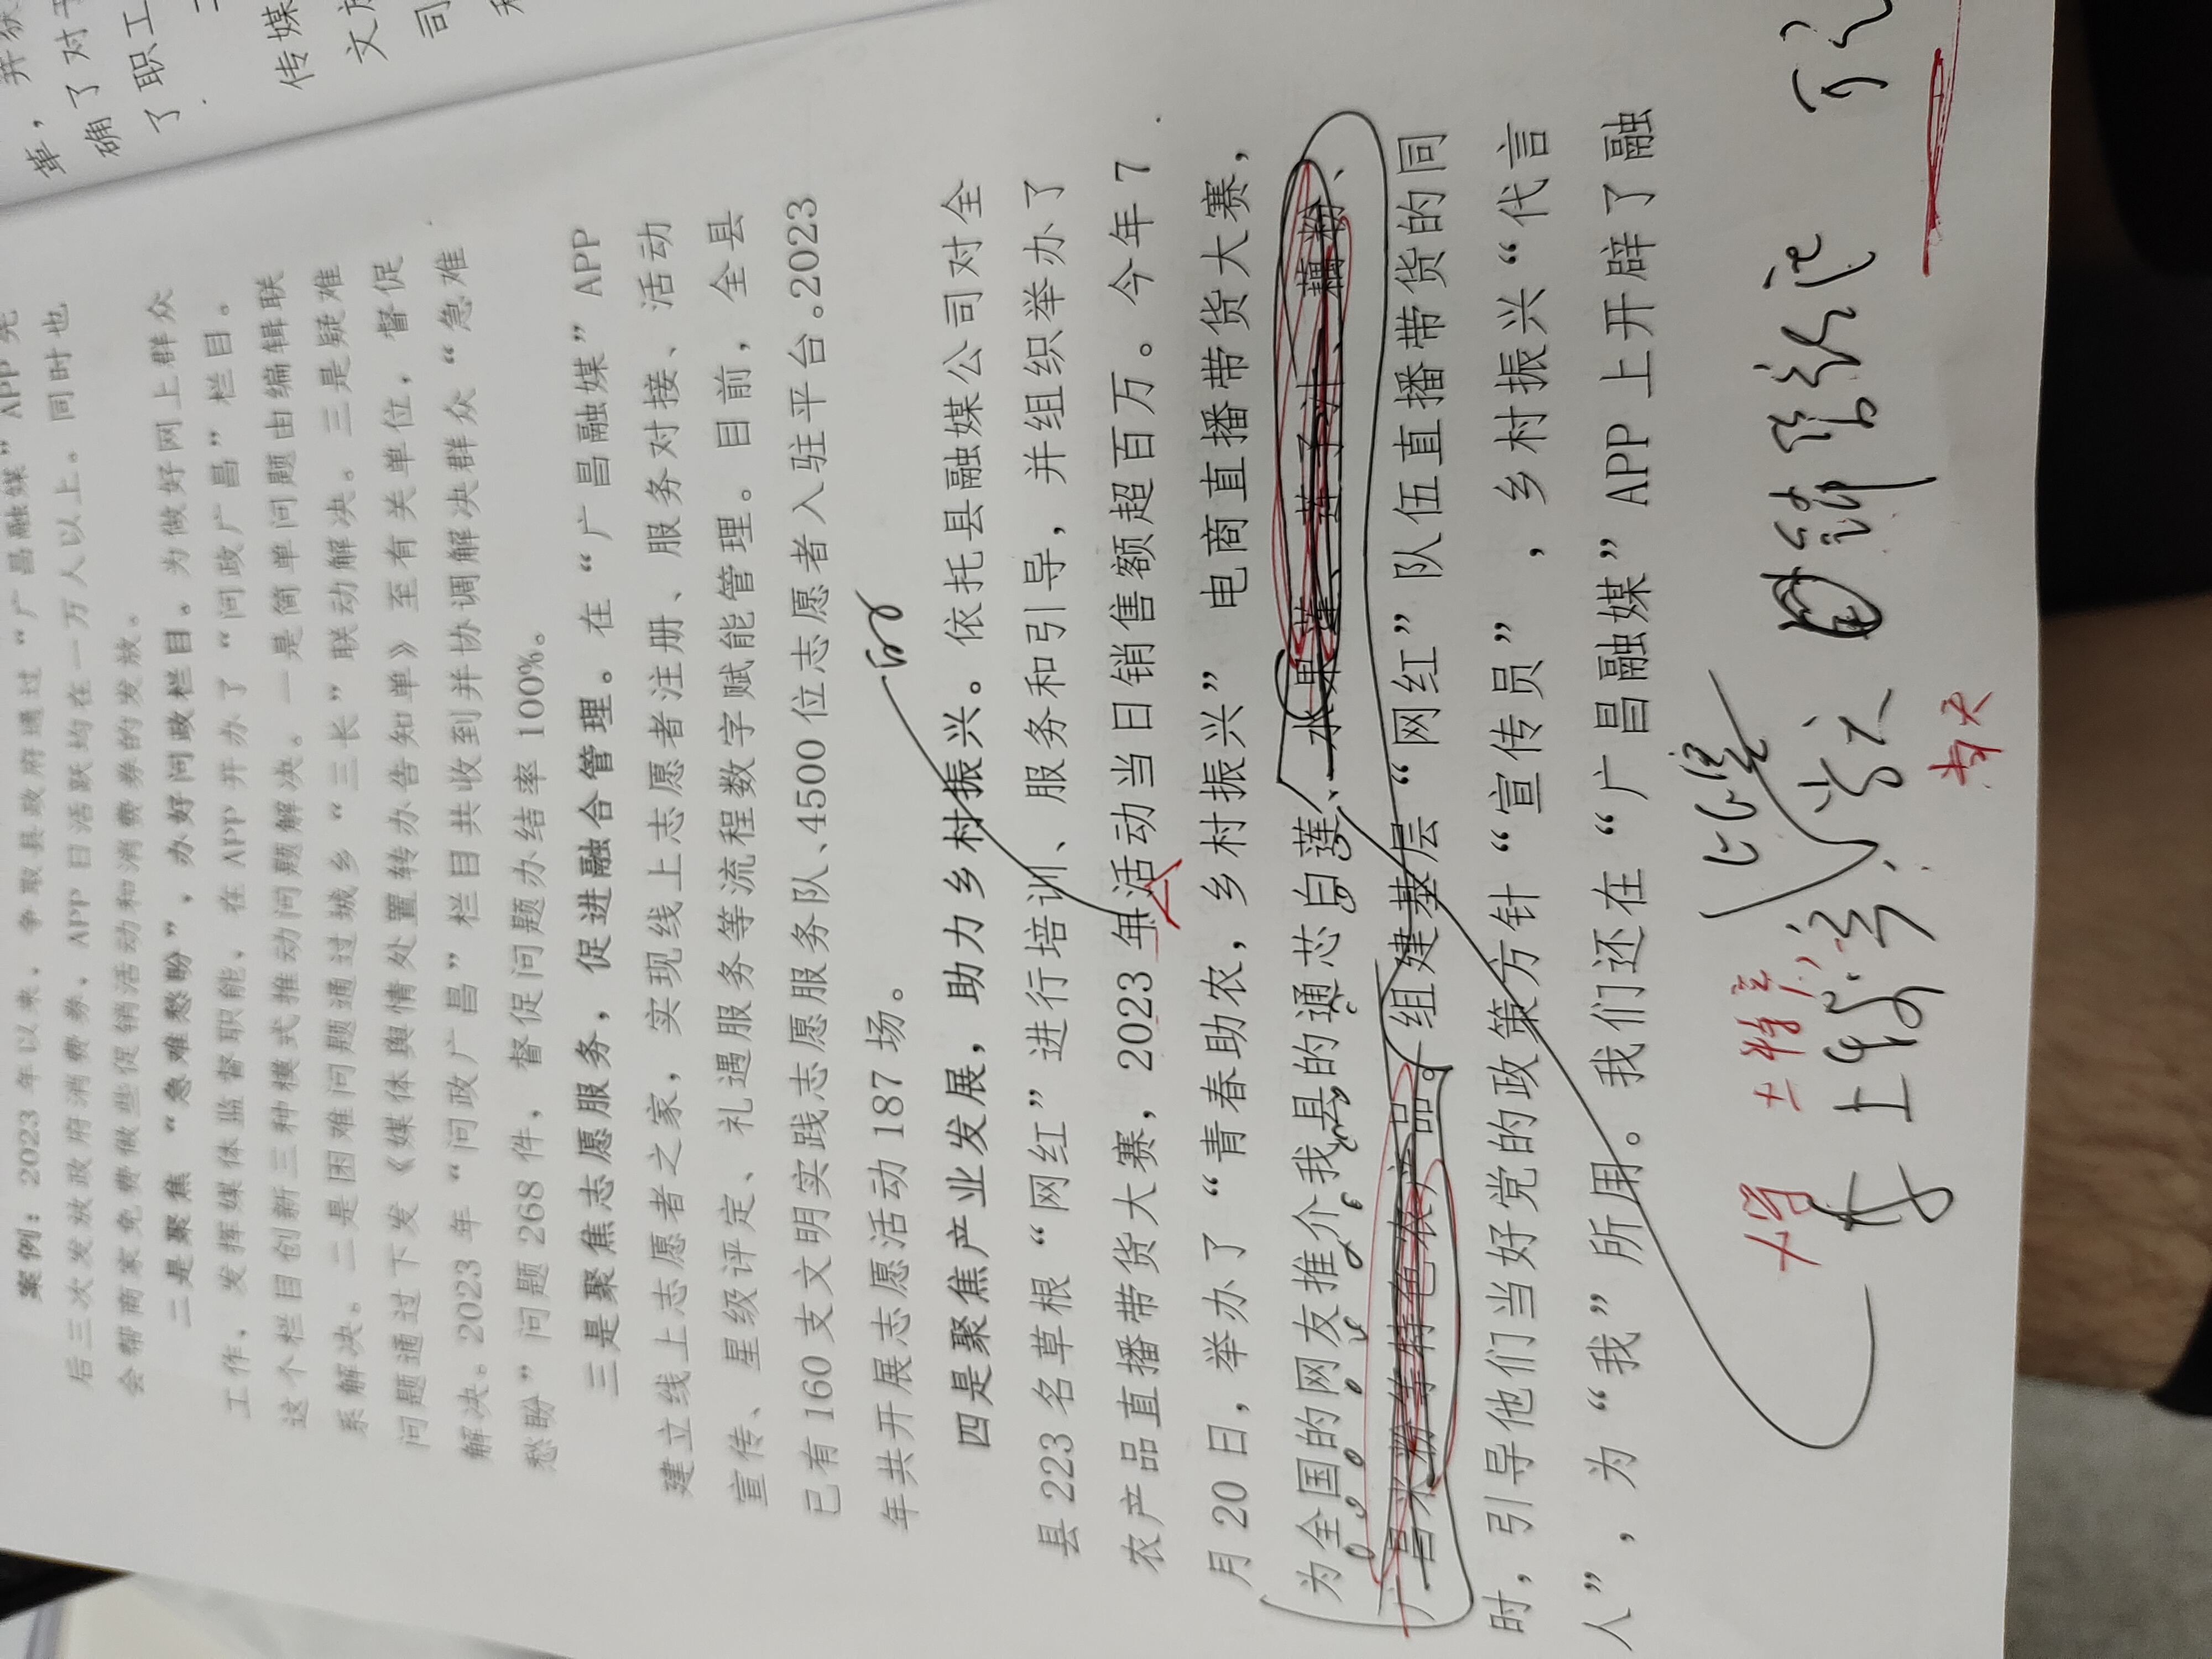 革，并
确了对于
了职工
传媒
司
案例：2023 年以来，争取县政府通过“广昌融媒”APP 先
后三次发放政府消费券，APP 日活跃均在一万人以上。同时也
会帮商家免费做些促销活动和消费券的发放。
二是聚焦“急难愁盼”，办好问政栏目。为做好网上群众
工作，发挥媒体监督职能，在 APP 开办了“问政广昌”栏目。
这个栏目创新三种模式推动问题解决。一是简单问题由编辑联
系解决。二是困难问题通过城乡“三长”联动解决。三是疑难
问题通过下发《媒体舆情处置转办告知单》至有关单位，督促
解决。2023 年“问政广昌”栏目共收到并协调解决群众“急难
愁盼”问题 268 件，督促问题办结率 100%。
三是聚焦志愿服务，促进融合管理。在“广昌融媒”APP
建立线上志愿者之家，实现线上志愿者注册、服务对接、活动
宣传、星级评定、礼遇服务等流程数字赋能管理。目前，全县
已有 160 支文明实践志愿服务队、4500 位志愿者入驻平台。2023
年共开展志愿活动 187 场。
四是聚焦产业发展，助力乡村振兴。依托县融媒公司对全
县 223 名草根“网红”进行培训、服务和引导，并组织举办了
农产品直播带货大赛，2023 年活动当日销售额超百万。今年 7
月 20 日，举办了“青春助农，乡村振兴”电商直播带货大赛，
为全国的网友推介我县的通芯白莲、水果莲、莲子汁、藕粉、
广昌米粉等特色农产品。组建基层“网红”队伍直播带货的同
时，引导他们当好党的政策方针“宣传员”，乡村振兴“代言
人”，为“我”所用。我们还在“广昌融媒”APP 上开辟了融
土特产